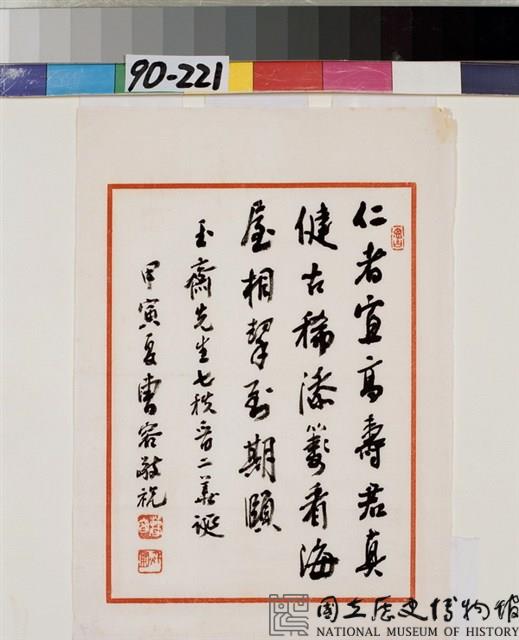 90-221
仁者宜高壽君真
健古稀添籌看海
屋相挈到期頤
玉齋先生七秩晉二華誕
甲寅夏曹容敬祝
國立歷史博物館
NATIONAL MUSEUM OF HISTORY